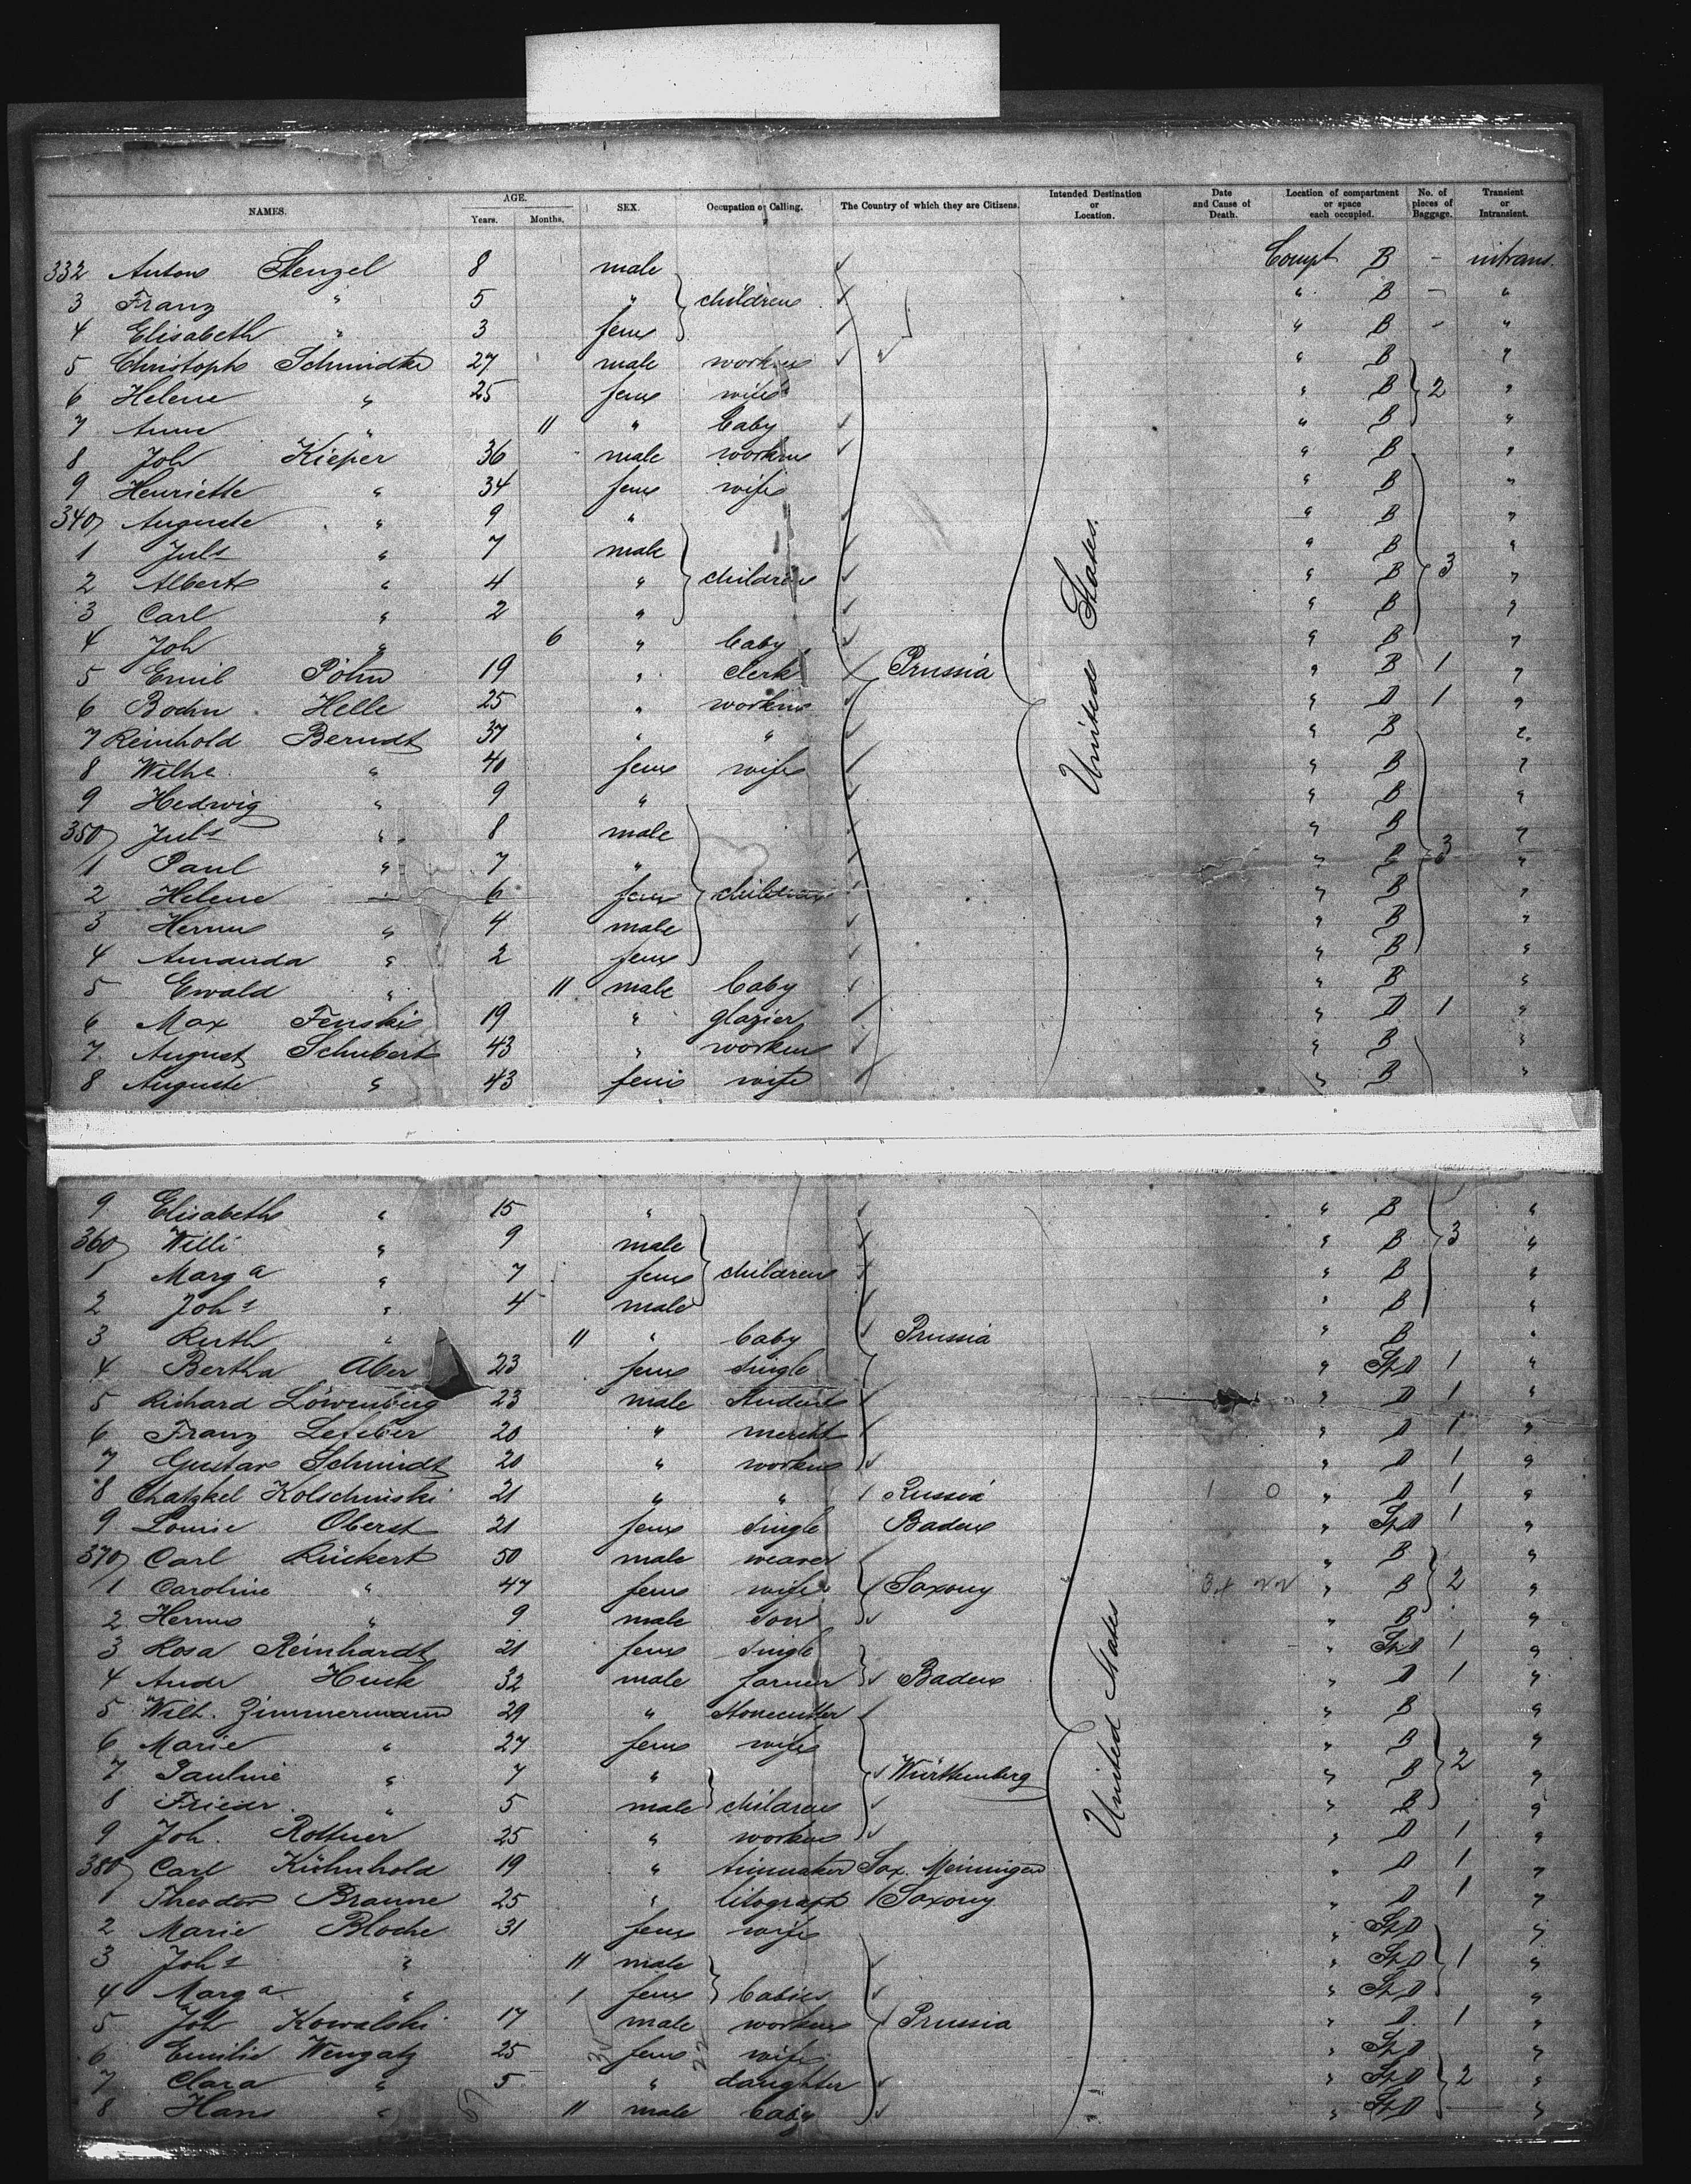 NAMES. AGE. Years. Months. SEX. Occupation or Calling. The Country of which they are Citizens. Intended Destination or Location. Date and Cause of Death. Location of compartment or space each occupied. No. of pieces of Baggage. Transient or Intransient.
332 Anton Stenzel 8 male Compt B - intrans.
3 Franz " 5 " children " B - "
4 Elisabeth " 3 fem " B - "
5 Christoph Schmidtke 27 male workm " B "
6 Helene " 25 fem wife " B 2 "
7 Anna " 11 " baby " B "
8 Joh Kieper 36 male workm " B "
9 Henriette " 34 fem wife " B "
340 Auguste " 9 " " B "
1 Juls " 7 male " B "
2 Albert " 4 " children " B 3 "
3 Carl " 2 " " B "
4 Joh " 6 " baby " B "
5 Emil Pohn 19 " clerk Prussia " B 1 "
6 Helle 25 " workm " D 1 "
7 Reinhold Berndt 37 " " " B "
8 Wilhe " 40 fem wife " B "
9 Hedwig " 9 " " B "
350 Juls " 8 male " B "
1 Paul " 7 " " B 3 "
2 Helene " 6 fem children " B "
3 Herm " 4 male " B "
4 Amanda " 2 fem " B "
5 Ewald " 11 male baby " B "
6 Max Fenski 19 " glazier " D 1 "
7 August Schubert 43 " workm " B "
8 Auguste " 43 fem wife " B "
United States.
9 Elisabeth " 15 " " B "
360 Willi " 9 male " B 3 "
1 Marga " 7 fem children " B "
2 Johs " 4 male " B "
3 Ruth " 11 " baby Prussia " B "
4 Bertha Aber 23 fem single " StD 1 "
5 Richard Löwenberg 23 male Student " D 1 "
6 Franz 20 " mercht " D 1 "
7 Gustav Schmidt 20 " workm " D 1 "
8 Chatzkel Kolschinski 21 " " Russia 1 0 " D 1 "
9 Louise Oberst 21 fem single Baden " StD 1 "
370 Carl Rückert 50 male weaver " B "
1 Caroline " 47 fem wife Saxony " B 2 "
2 Herm " 9 male son " B "
3 Rosa Reinhardt 21 fem single " StD 1 "
4 Andr Huck 32 male farmer Baden " D 1 "
5 Wilh. Zimmermann 29 " Stonecutter " B "
6 Marie " 27 fem wife " B "
7 Pauline " 7 " Württemberg " B 2 "
8 Friedr. " 5 male children " B "
9 Joh. Rottner 25 " workm " D 1 "
380 Carl Kühnhold 19 " Sax. Meiningen " D 1 "
1 Theodor Braune 25 " litograph Saxony " D 1 "
2 Marie Bloche 31 fem wife " StD "
3 Johs " 11 male " StD 1 "
4 Marga " 1 fem babies " StD "
5 Joh Kowalski 17 male workm Prussia " D 1 "
6 Emilie Wengatz 25 fem wife " StD "
7 Clara " 5 " daughter " StD 2 "
8 Hans " 11 male baby " StD "
United States